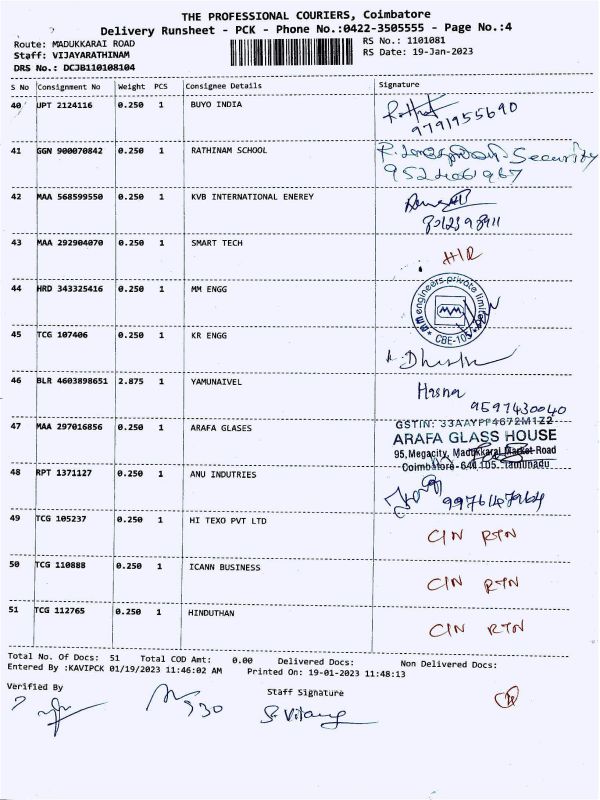 THE PROFESSIONAL COURIERS, Coimbatore
Delivery Runsheet - PCK - Phone No.:0422-3505555 - Page No.:4
Route: MADUKKARAI ROAD RS No.: 1101081
Staff: VIJAYARATHINAM RS Date: 19-Jan-2023
DRS No.: DCJB110108104
S No Consignment No Weight PCS Consignee Details Signature
40 UPT 2124116 0.250 1 BUYO INDIA
9791955690
41 GGN 900070842 0.250 1 RATHINAM SCHOOL Security
42 MAA 568599550 0.250 1 KVB INTERNATIONAL ENEREY
43 MAA 292904070 0.250 1 SMART TECH
44 HRD 343325416 0.250 1 MM ENGG
mm engineers private limited
MM
CBE-105
45 TCG 107406 0.250 1 KR ENGG
46 BLR 4603898651 2.875 1 YAMUNAIVEL Hasna
9597430040
47 MAA 297016856 0.250 1 ARAFA GLASES
GSTIN: 33AAYPF4672M1Z2
ARAFA GLASS HOUSE
95, Megacity, Madukkarai Market Road
Coimbatore-641 105. Tamilnadu
48 RPT 1371127 0.250 1 ANU INDUTRIES
49 TCG 105237 0.250 1 HI TEXO PVT LTD C/N RTN
50 TCG 110888 0.250 1 ICANN BUSINESS C/N RTN
51 TCG 112765 0.250 1 HINDUTHAN C/N RTN
Total No. Of Docs: 51 Total COD Amt: 0.00 Delivered Docs: Non Delivered Docs:
Entered By :KAVIPCK 01/19/2023 11:46:02 AM Printed On: 19-01-2023 11:48:13
Verified By Staff Signature
930